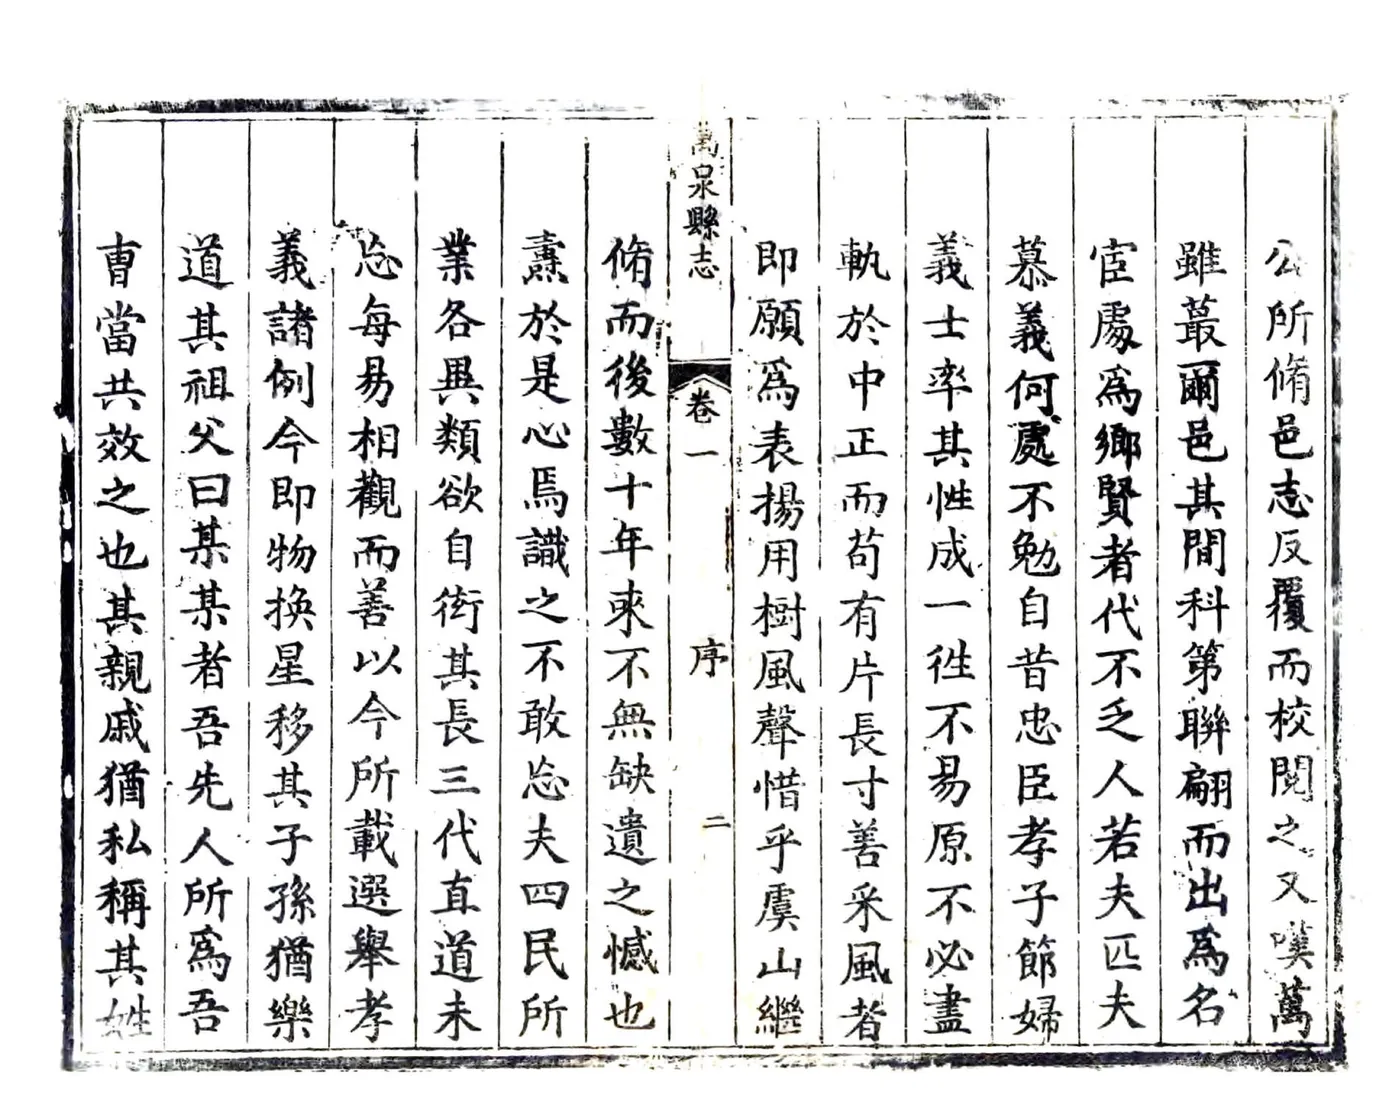 公所脩邑志反覆而校閱之又嘆萬
雖蕞爾邑其間科第聯翩而出爲名
宦處爲鄉賢者代不乏人若夫匹夫
慕義何處不勉自昔忠臣孝子節婦
義士率其性成一徃不易原不必盡
軌於中正而苟有片長寸善采風者
即願爲表揚用樹風聲惜乎虞山繼
萬泉縣志
卷一
序
二
脩而後數十年來不無缺遺之憾也
燾於是心焉識之不敢忘夫四民所
業各異類欲自衒其長三代直道未
忘每易相觀而善以今所載選舉孝
義諸例今即物換星移其子孫猶樂
道其祖父曰某某者吾先人所爲吾
曹當共效之也其親戚猶私稱其姓